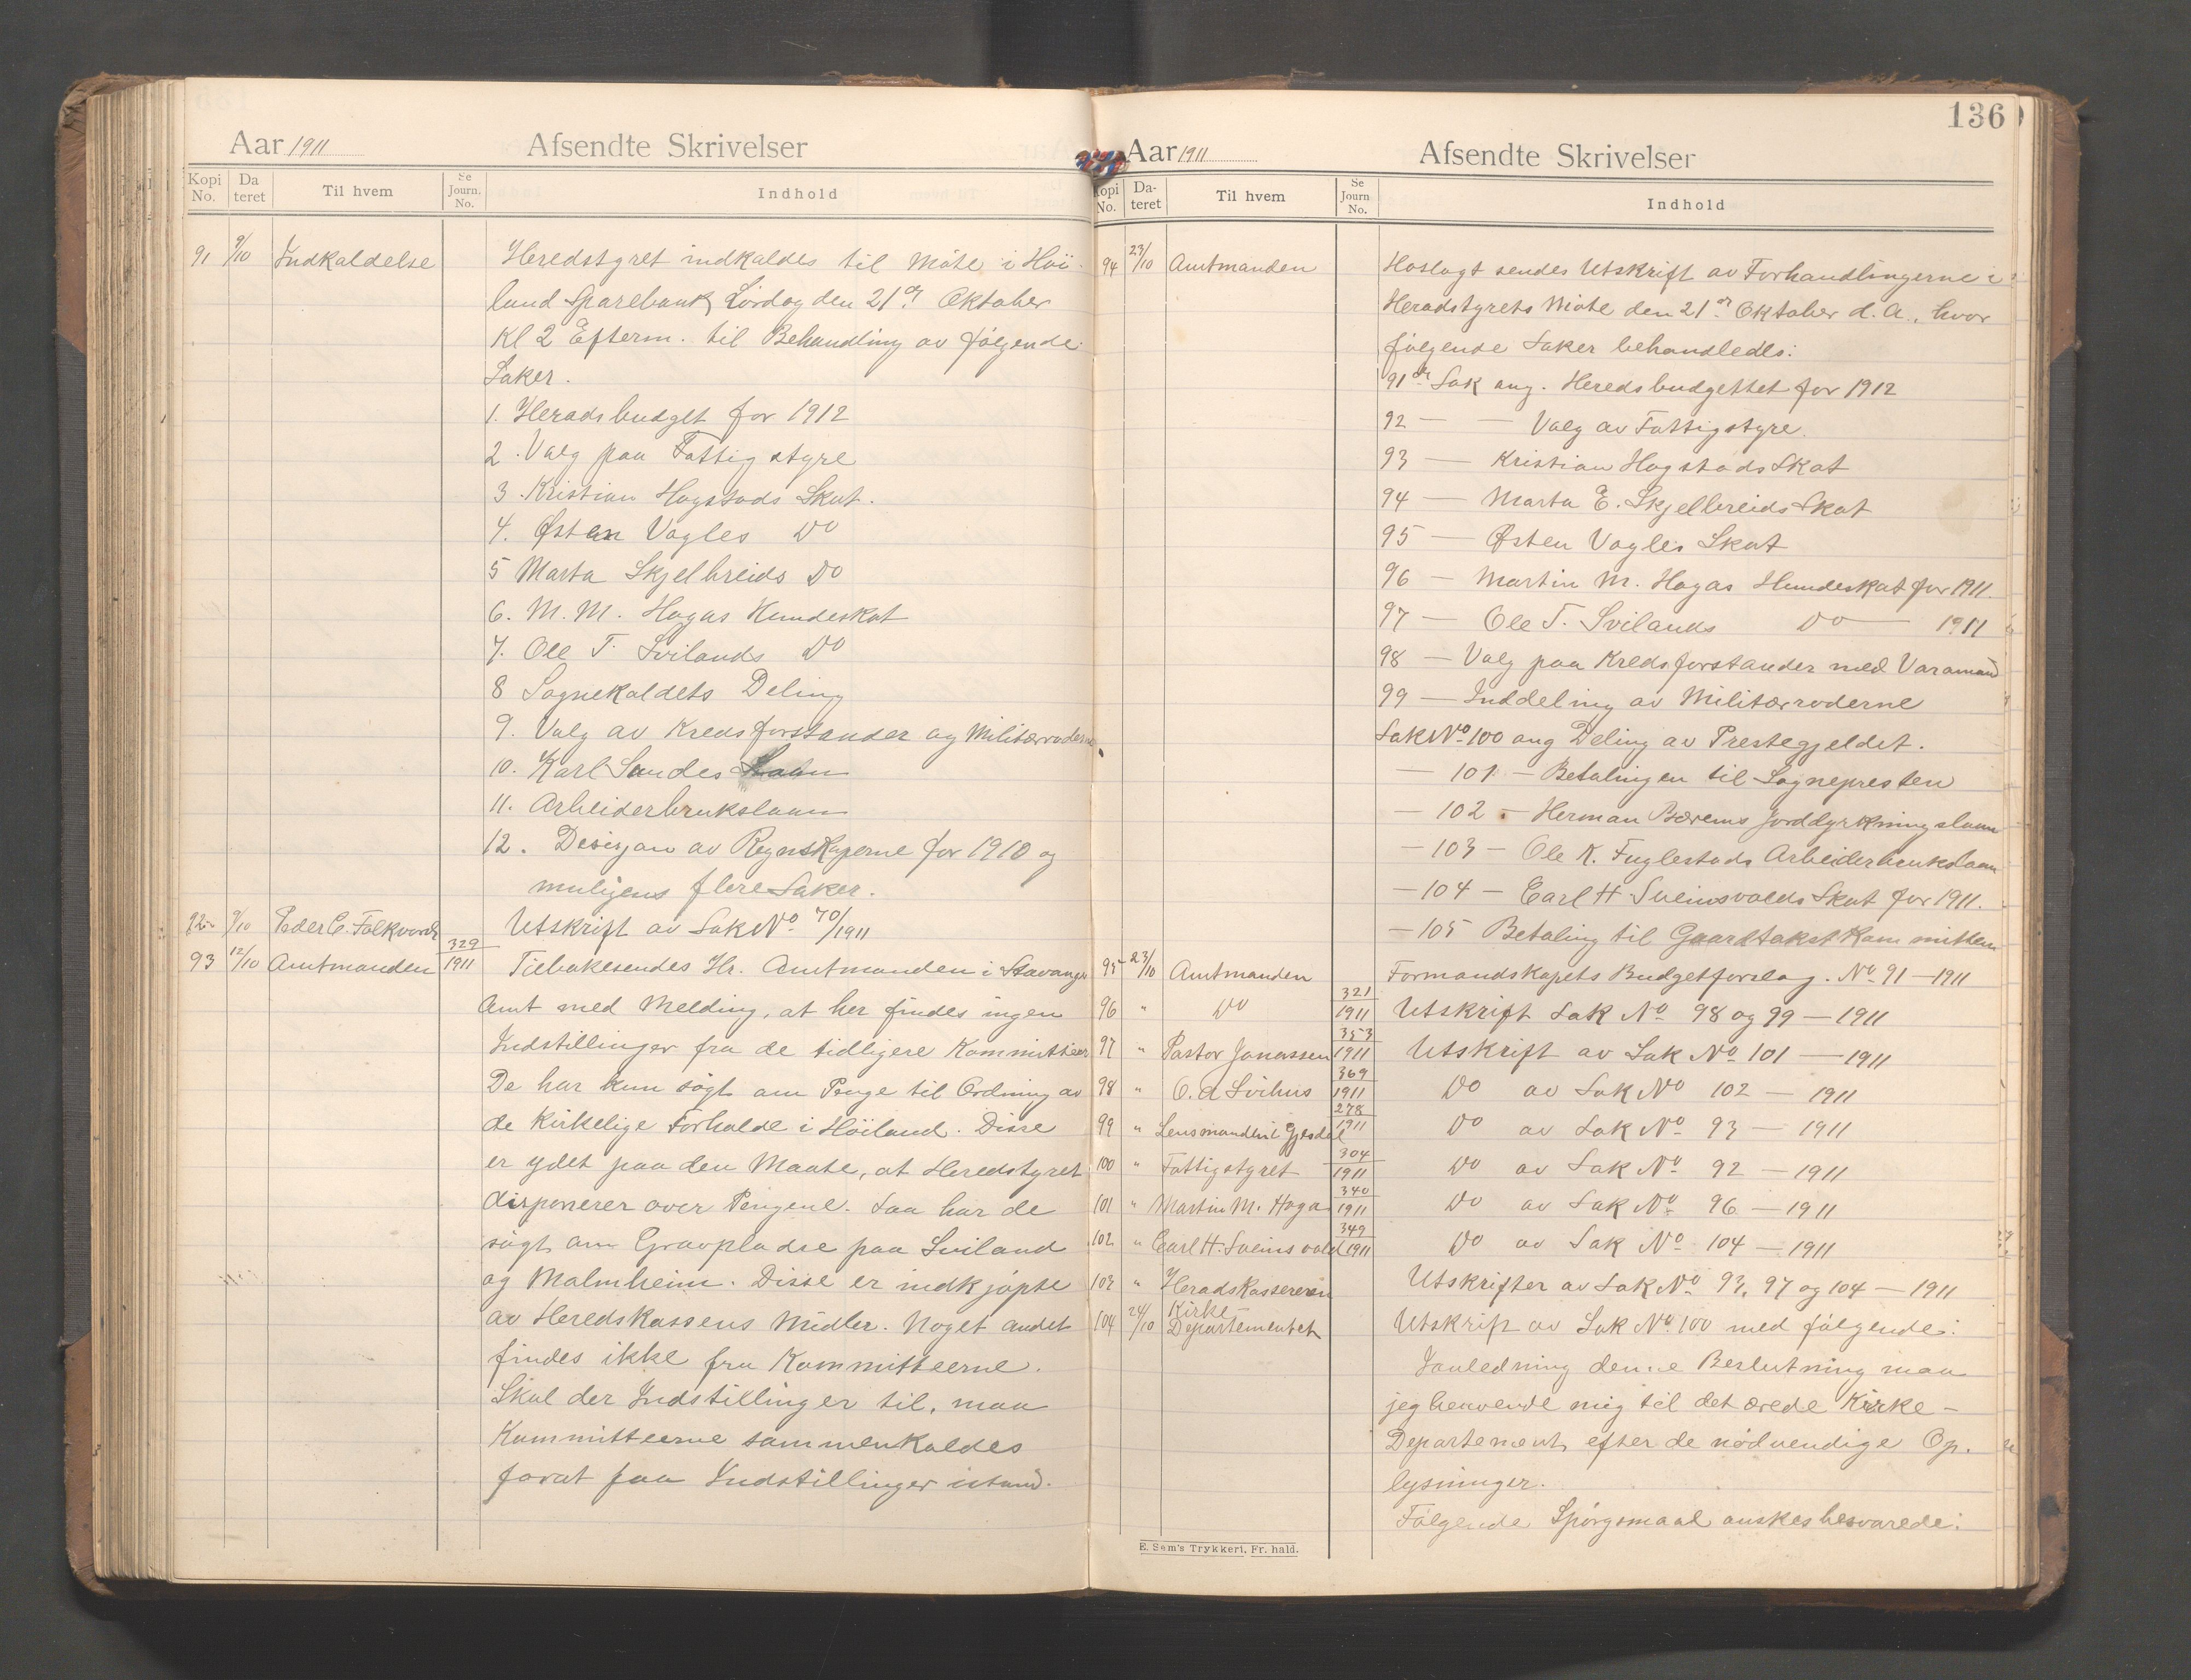 Aar 1911 Afsendte Skrivelser
Kopi No. Da teret Til hvem Se Journ. No. Indhold
91 9/10 Indkaldelse Heredstyret indkaldes til Møte i Höi-
land Sparebank Lördag den 21de Oktober
Kl 2 Efterm. til Behandling av følgende
Saker.
1. Heradsbudget for 1912
2. Valg paa Fattigstyre
3. Kristian Hogstads Skat.
4. Østen Vagles Do
5 Marta Skjelbreids Do
6. M. M. Hogas Hundeskat
7. Ole T. Svilands Do
8 Sognekaldets Deling
9. Valg av Kredsforstander og Militærroderne
10. Karl Sandes Laan
11. Arbeiderbrukslaan
12. Desisjon av Regnskaperne for 1910 og
muligens flere Saker.
92 9/10 Peder C. Folkvord Utskrift av Sak No 70/1911
93 12/10 Amtmanden 329/1911 Tilbakesendes Hr. Amtmanden i Stavanger
Amt med Melding, at her findes ingen
Indstillinger fra de tidligere Kommitteer
De har kun søgt om Penge til Ordning av
de kirkelige Forholde i Höiland. Disse
er ydet paa den Maate, at Heredstyret
disponerer over Pengene. Saa har de
søgt om Gravpladse paa Sviland
og Malmheim. Disse er indkjøpte
av Heredskassens Midler. Noget andet
findes ikke fra Kommitteerne.
Skal der Indstillinger til, maa
Kommitteerne sammenkaldes
forat faa Indstillinger istand.
136
Aar 1911 Afsendte Skrivelser
Kopi No. Da- teret Til hvem Se Journ No. Indhold
94 23/10 Amtmanden Hoslagt sendes Utskrift av Forhandlingerne i
Heradstyrets Møte den 21de Oktober d. A., hvor
følgende Saker behandledes:
91de Sak ang. Heredsbudgettet for 1912
92 — — Valg av Fattigstyre.
93 — Kristian Hogstads Skat
94 — Marta E. Skjelbreids Skat
95 — Østen Vagles Skat
96 — Martin M. Hogas Hundeskat for 1911.
97 — Ole T. Svilands Do — 1911
98 — Valg paa Kredsforstander med Varamand
99 — Inddeling av Militærroderne
Sak No 100 ang Deling av Prestegjeldet.
— 101 — Betalingen til Sognepresten
— 102 — Herman Bærems Jorddyrkningslaan
— 103 — Ole K. Fuglestads Arbeiderbrukslaan
— 104 — Earl H Sveinsvolds Skat for 1911.
— 105 Betaling til Gaardtakstkommitteen
95 23/10 Amtmanden Formandskapets Budgetforslag. No 91 — 1911
96 " Do 321/1911 Utskrift Sak No 98 og 99 — 1911
97 " Pastor Jonassen 353/1911 Utskrift av Sak No 101 — 1911
98 " O. A Svihus 369/1911 Do av Sak No 102 — 1911
99 " Lensmanden i Gjesdal 278/1911 Do av Sak No 93 — 1911
100 " Fattigstyret 304/1911 Do av Sak No 92 — 1911
101 " Martin M. Hoga 340/1911 Do av Sak No 96 — 1911
102 " Earl H. Sveinsvold 349/1911 Do av Sak No 104 — 1911
103 " Heradskassereren Utskrifter av Sak No 93, 97 og 104 — 1911
104 24/10 Kirke-Departementet Utskrift av Sak No 100 med følgende:
I anledning denne Beslutning maa
jeg henvende mig til det ærede Kirke-
Departement, efter de nödvendige Op-
lysninger.
Følgende Spörgsmaal ønskes besvarede:
E. Sem's Trykkeri, Fr. hald.